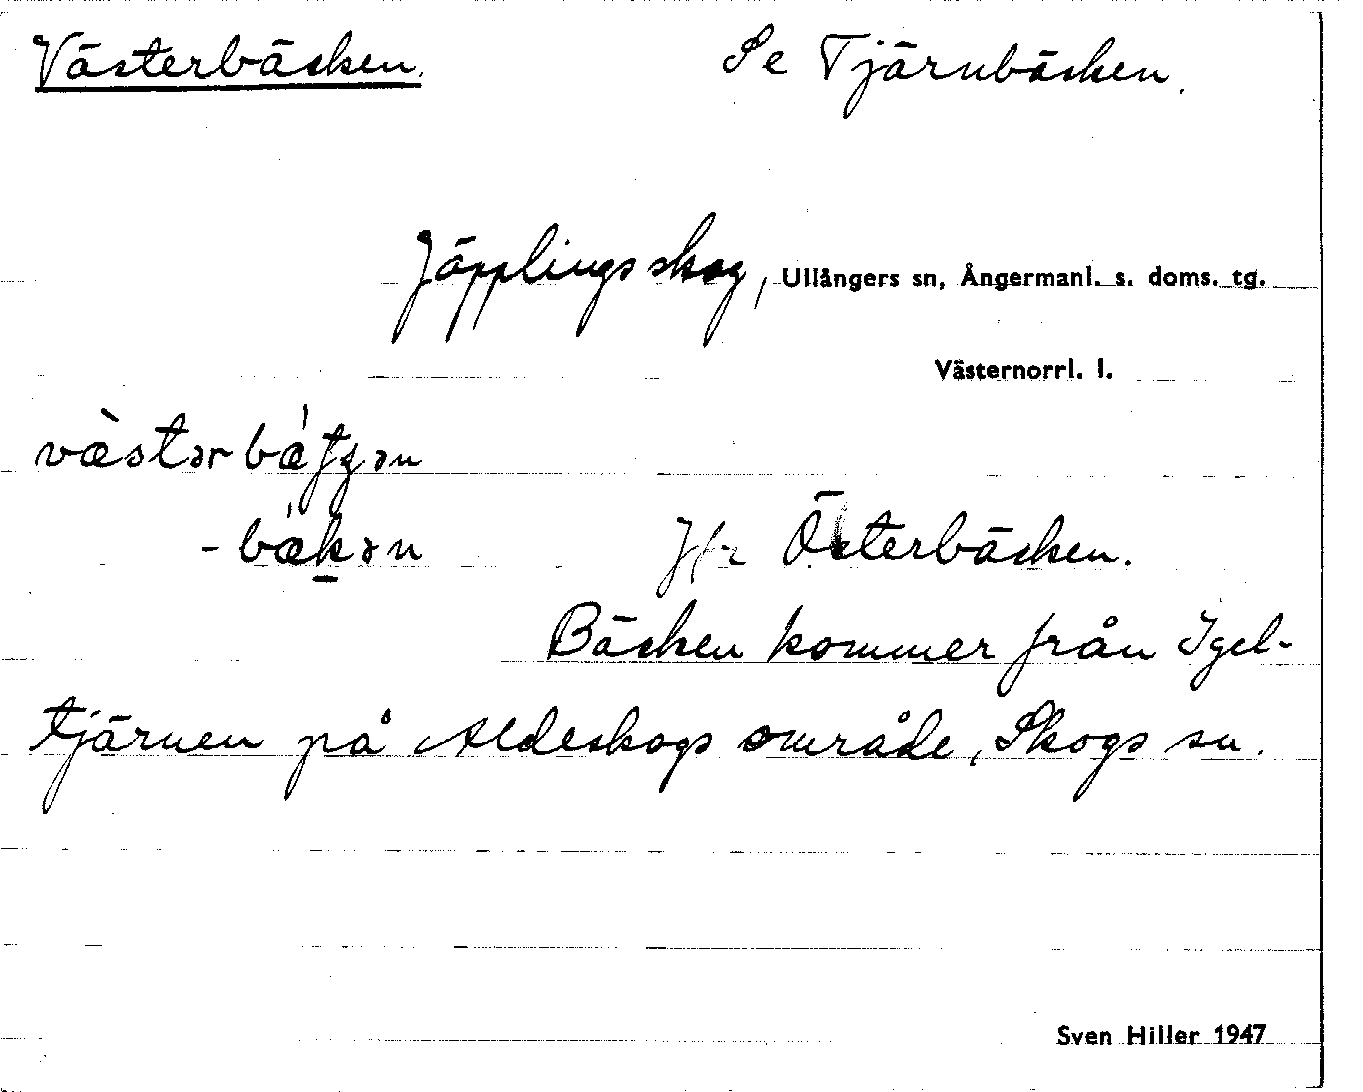 Västerbäcken. Se Tjärnbäcken.
Jäpplingsskog, Ullångers sn, Ångermanl. s. doms. tg.
Västernorrl. l.
væ̀stər
-bækən Jfr Österbäcken.
Bäcken kommer från Igel-
tjärnen på Aldeskogs område, Skogs sn.
Sven Hiller 1947